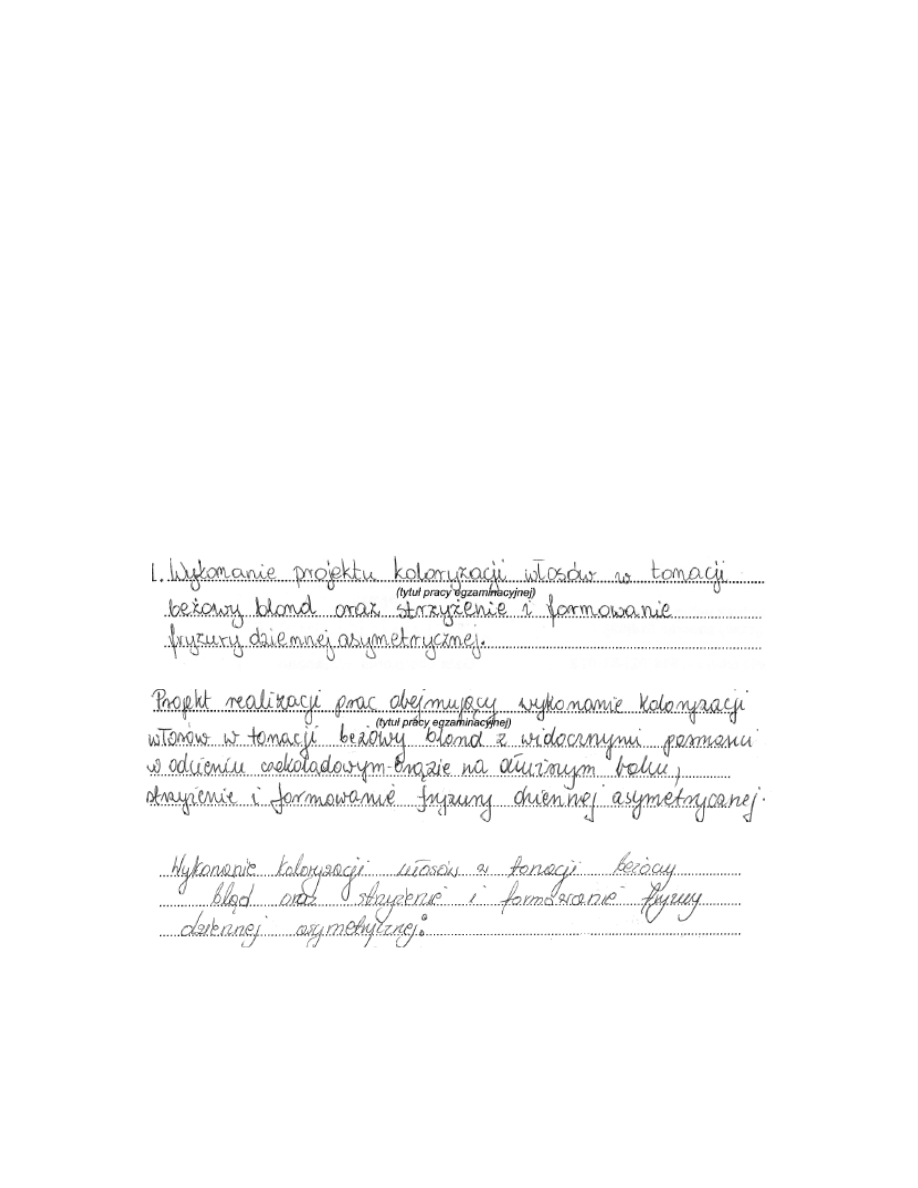 1. Wykonanie projektu koloryzacji włosów w tonacji
(tytuł pracy egzaminacyjnej)
beżowy blond oraz strzyżenie i formowanie
fryzury dziennej asymetrycznej.
Projekt realizacji prac obejmujący wykonanie koloryzacji
(tytuł pracy egzaminacyjnej)
włosów w tonacji beżowy blond z widocznymi pasmami
w odcieniu czekoladowym-brązie na dłuższym boku,
strzyżenie i formowanie fryzury dziennej asymetrycznej.
Wykonanie koloryzacji włosów w tonacji beżocy
bląd oraz strzyżenie i formowanie fryzury
dziennej asymetrycznej.